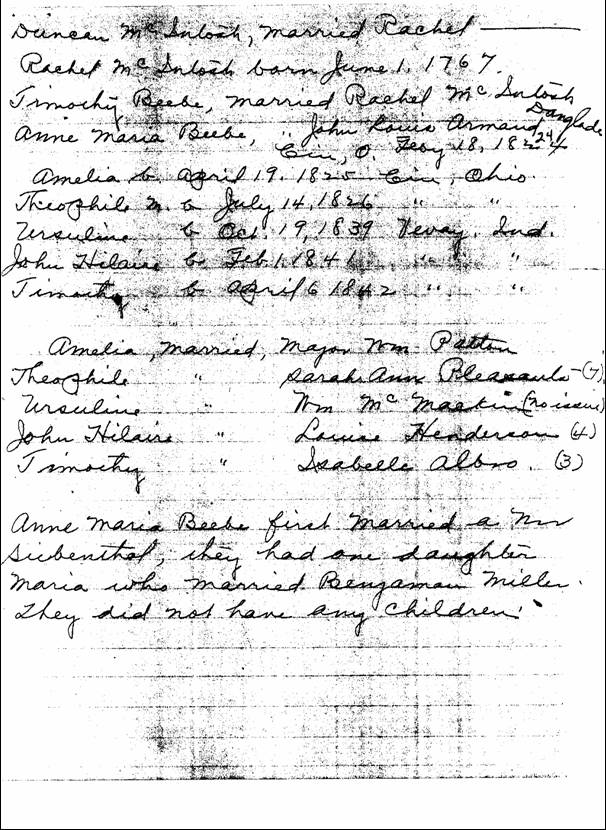 Duncan Mc Intosh, married Rachel ———
Rachel Mc Intosh born June 1, 1767.
Timothy Beebe, married Rachel Mc Intosh
Anne Maria Beebe, " John Louis Armand Danglade
Cin, O. Feby 18, 1824
Amelia b April 19. 1825 Cin, Ohio.
Theophile M. b July 14, 1826 " "
Ursuline b Oct. 19, 1839 Vevay, Ind.
John Hilaire b Feb 1, 1841 " "
Timothy b April 6 1842 " "
Amelia, Married, Major Wm Patton
Theophile " Sarah Ann Pleasants - (7)
Ursuline " Wm Mc Maekin (no issue)
John Hilaire " Louise Henderson (4)
Timothy " Isabelle Albro. (3)
Anne Maria Beebe first married a Mr
Siebenthal, they had one daughter
Maria who married Bengaman Miller.
They did not have any children.